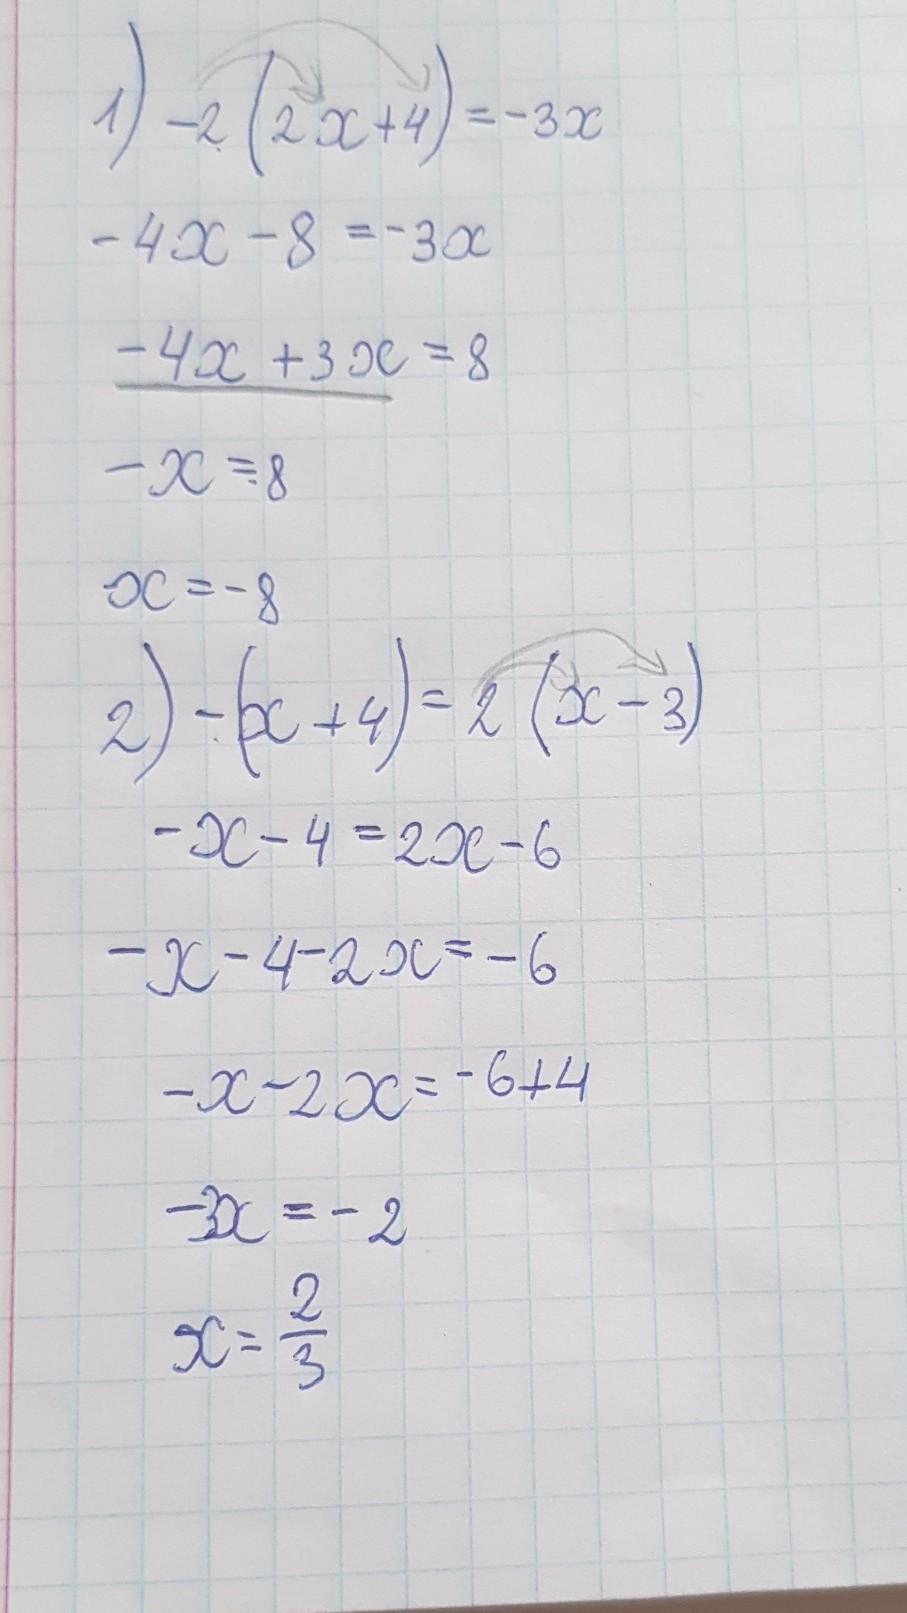 1) -2(2x+4)=-3x
-4x-8=-3x
-4x+3x=8
-x=8
x=-8
2) -(x+4)=2(x-3)
-x-4=2x-6
-x-4-2x=-6
-x-2x=-6+4
-3x=-2
x=2/3